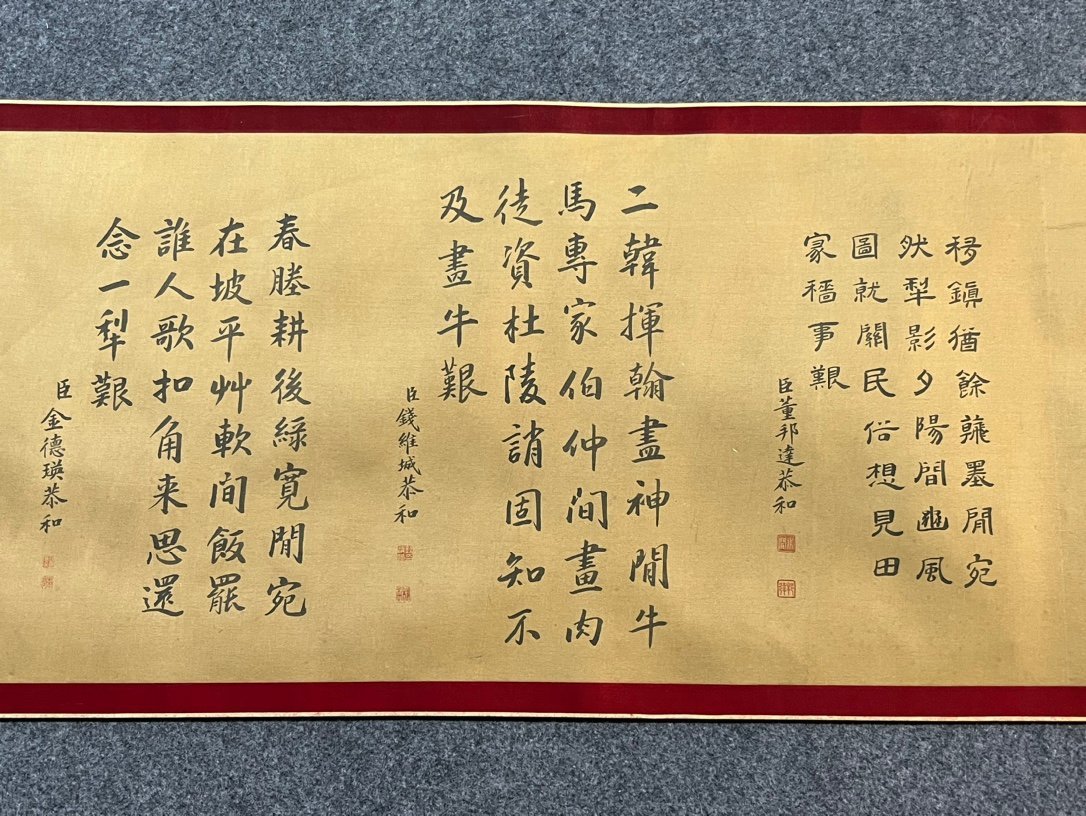 鎮猶餘蘸墨閒宛
然犁影夕陽間豳風
圖就關民俗想見田
家穡事艱
臣董邦達恭和
二韓揮翰盡神閒牛
馬專家伯仲间畫肉
徒資杜陵誚固知不
及盡牛艱
臣錢維城恭和
春塍耕後綠寬閒宛
在坡平艸軟间飯罷
誰人歌扣角来思還
念一犁艱
臣金德瑛恭和